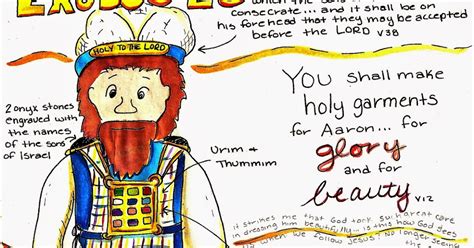 EXODUS 28
which the sons
consecrate... and it shall be on
his forehead that they may be accepted
before the LORD v38
HOLY TO THE LORD
2 onyx stones
engraved with
the names
of the sons
of Israel
Urim &
Thummim
YOU shall make
holy garments
for Aaron... for
glory
and for
beauty v2
it strikes me that God took such great care
in dressing him beautifully... is this how God sees
us when we follow Jesus? No longer seeing
the